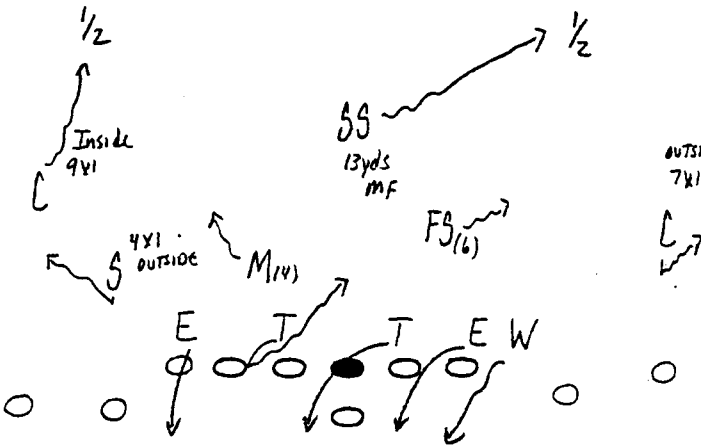 1/2
1/2
Inside
9x1
C
SS
13yds
MF
OUTSI
7x1
C
FS(6)
S
4x1
OUTSIDE
M(4)
E
T
T
E
W